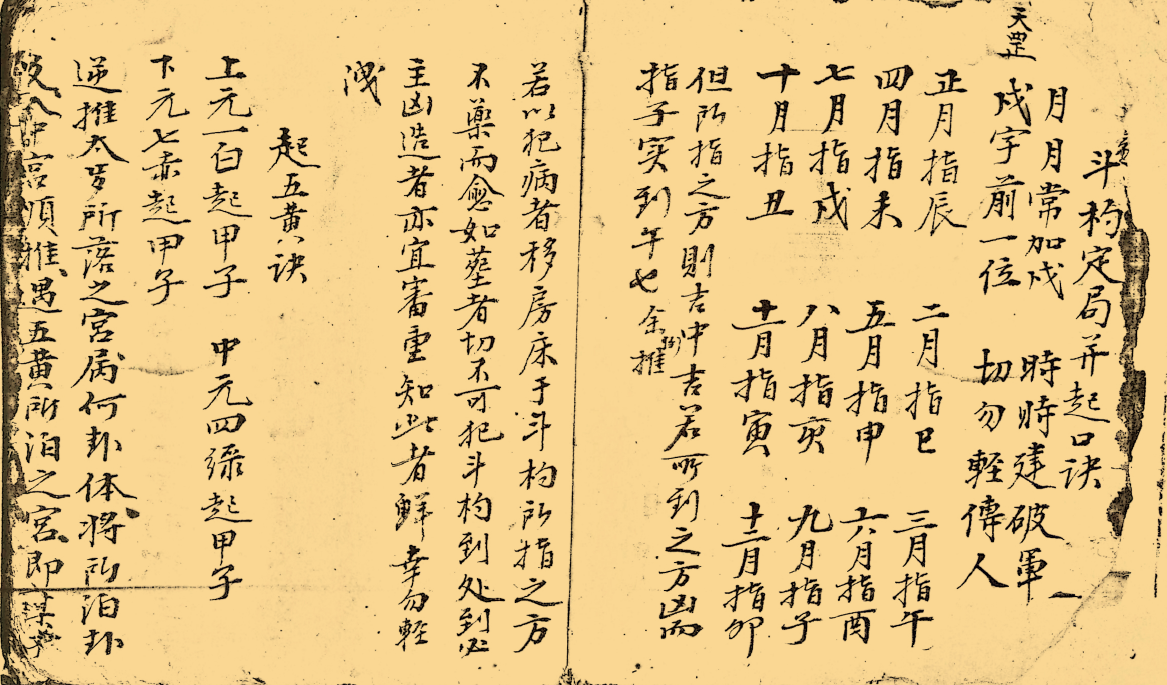 斗杓定局并起口訣
月月常加戍 時時建破軍
天罡
戍字前一位 切勿輕傳人
正月指辰 二月指巳 三月指午
四月指未 五月指申 六月指酉
七月指戌 八月指亥 九月指子
十月指丑 十一月指寅 十二月指卯
但所指之方則吉冲吉若所到之方凶而
指子实到午也 余推
若以犯病者移房床于斗杓所指之方
不藥而愈如塟者切不可犯斗杓到处到必
主凶造者亦宜審重知此者鮮幸勿輕
洩
起五黄訣
上元一白起甲子 中元四綠起甲子
下元七赤起甲子
逆推太岁所落之宫属何卦体将所泊卦
入中宫順推遇五黄所泊之宫即